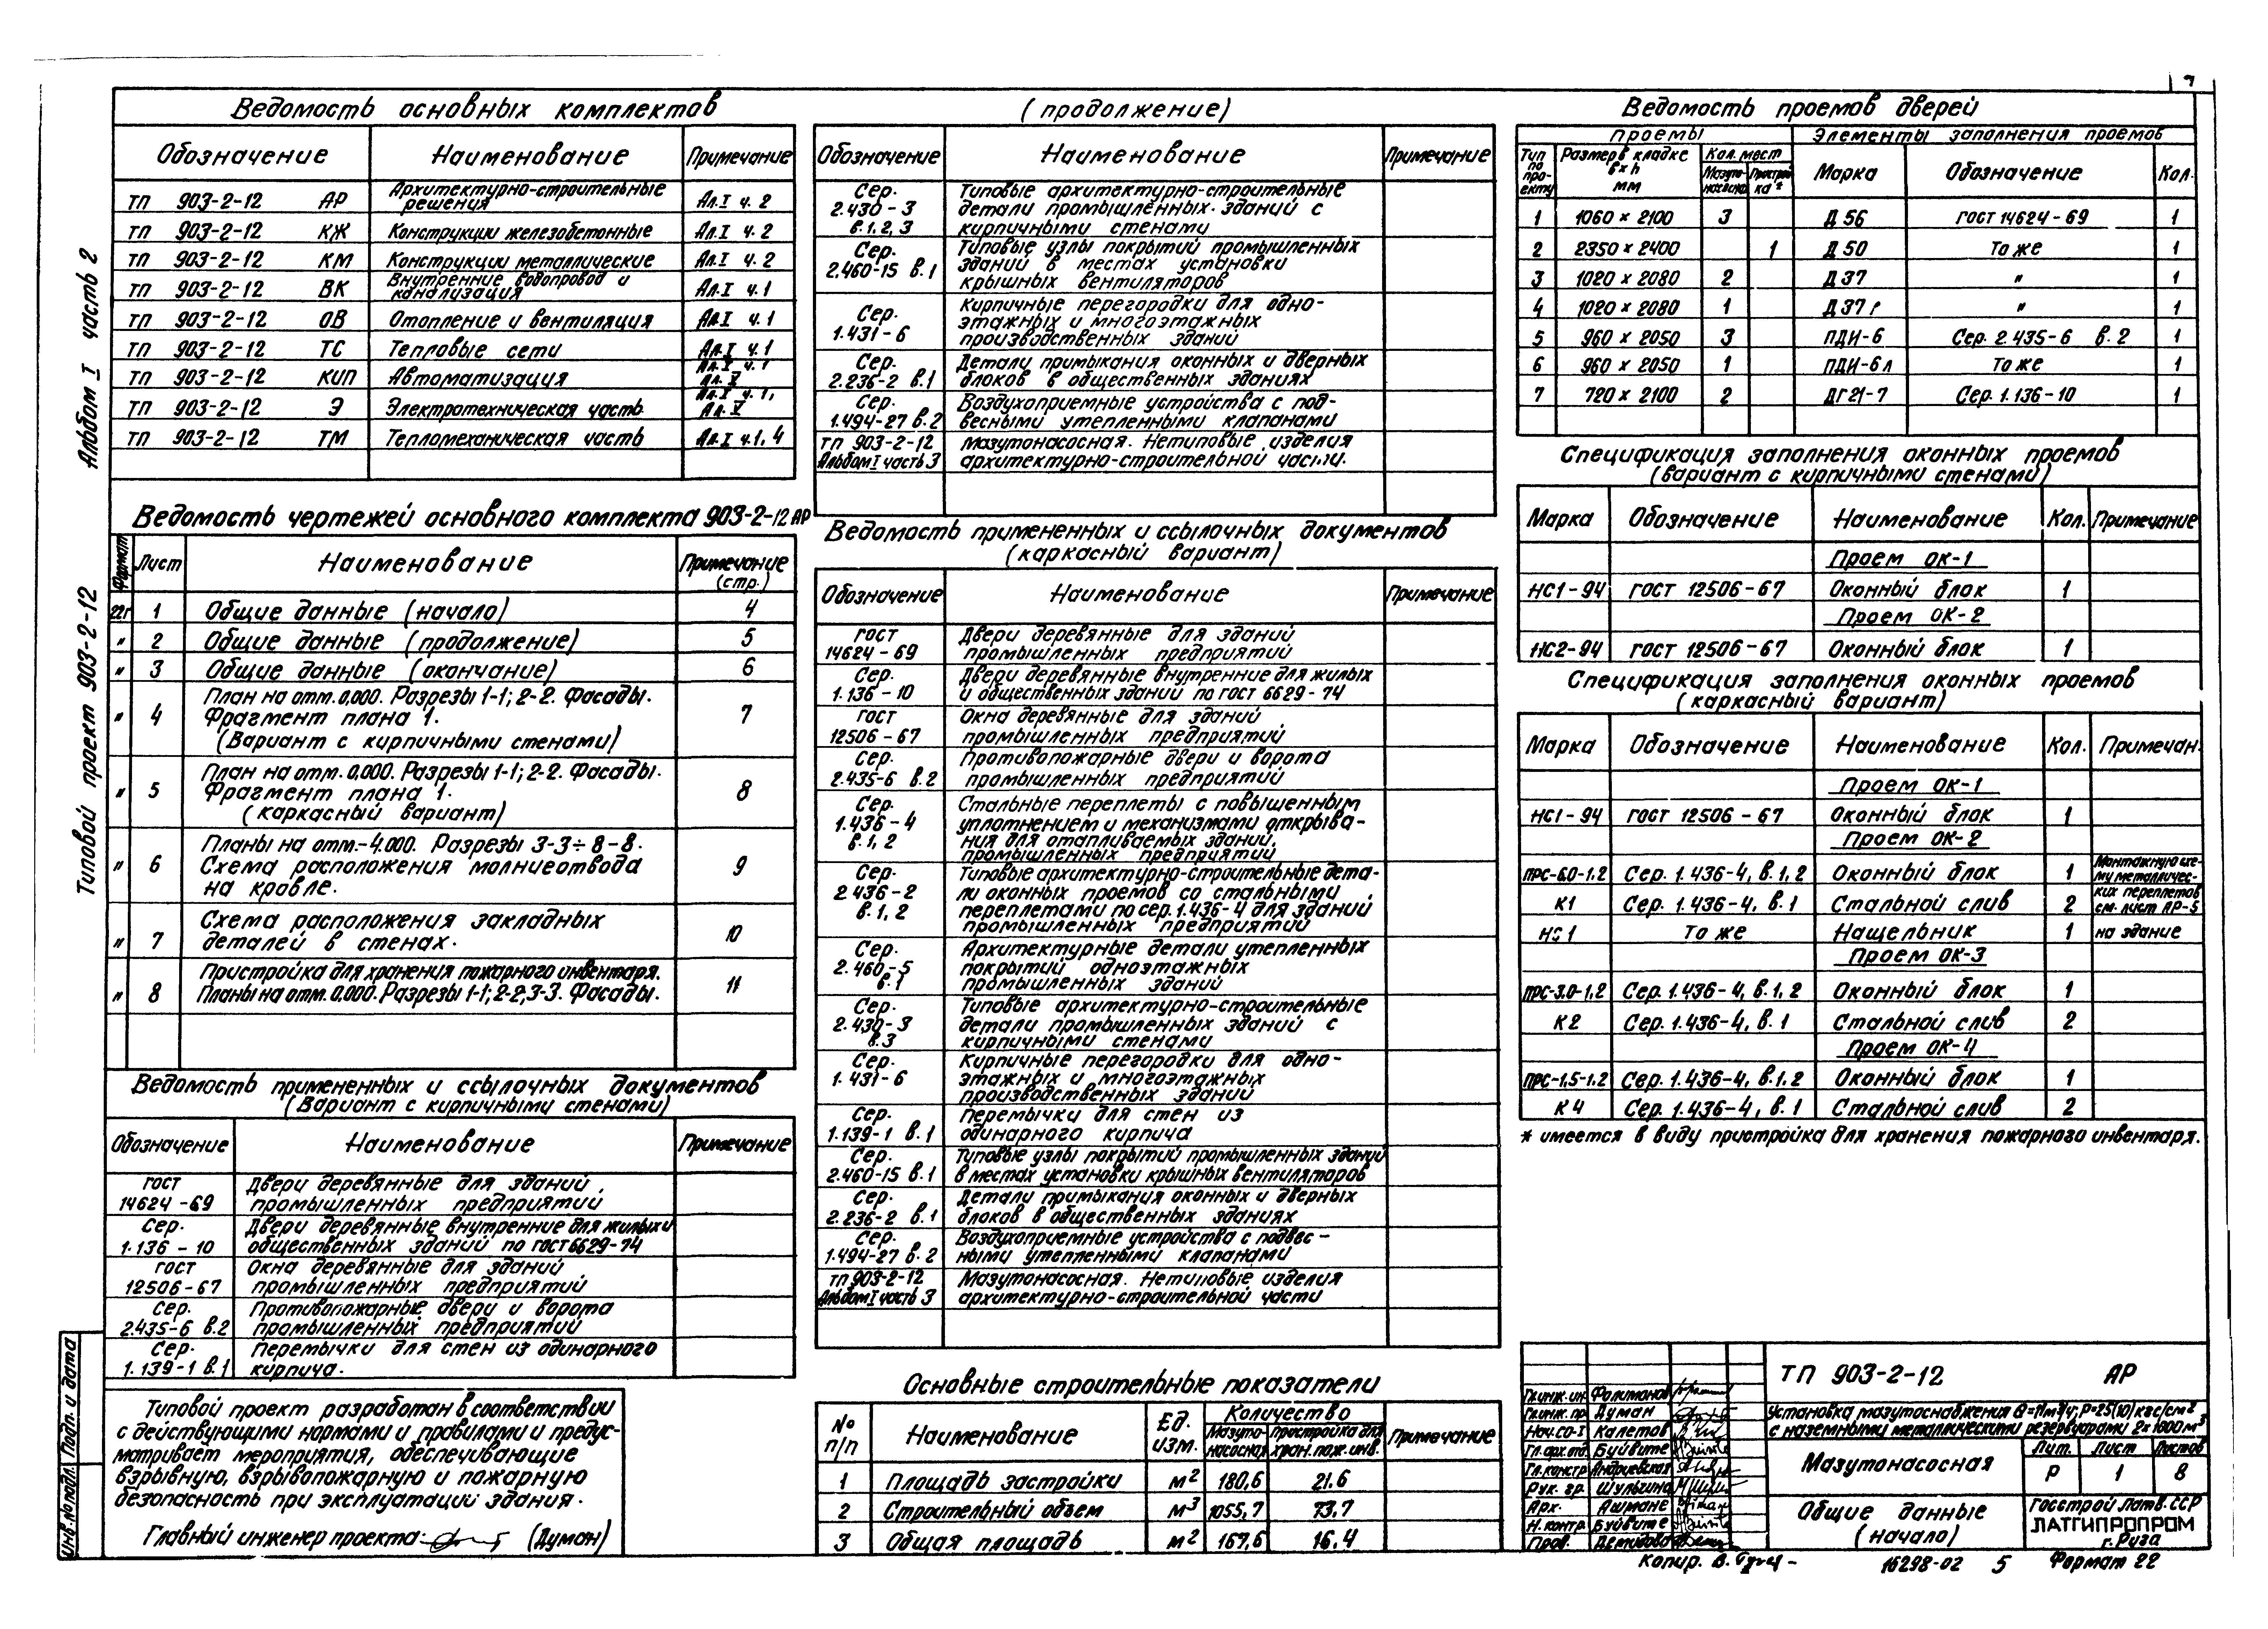 Альбом I часть 2
Типовой проект 903-2-12
Инв.№ подл. Подп. и дата
7
Ведомость основных комплектов
Обозначение Наименование Примечание
ТП 903-2-12 АР Архитектурно-строительные решения Ал.I ч.2
ТП 903-2-12 КЖ Конструкции железобетонные Ал.I ч.2
ТП 903-2-12 КМ Конструкции металлические Ал.I ч.2
ТП 903-2-12 ВК Внутренние водопровод и канализация Ал.I ч.1
ТП 903-2-12 ОВ Отопление и вентиляция Ал.I ч.1
ТП 903-2-12 ТС Тепловые сети Ал.I ч.1
ТП 903-2-12 КИП Автоматизация Ал.I ч.1 Ал.V
ТП 903-2-12 Э Электротехническая часть Ал.I ч.1, Ал.V
ТП 903-2-12 ТМ Тепломеханическая часть Ал.I ч.1,4
Ведомость чертежей основного комплекта 903-2-12 АР
Формат Лист Наименование Примечание (стр.)
22г 1 Общие данные (начало) 4
" 2 Общие данные (продолжение) 5
" 3 Общие данные (окончание) 6
" 4 План на отм. 0,000. Разрезы 1-1; 2-2. Фасады. 7
Фрагмент плана 1.
(Вариант с кирпичными стенами)
" 5 План на отм. 0,000. Разрезы 1-1; 2-2. Фасады. 8
Фрагмент плана 1.
(каркасный вариант)
" 6 Планы на отм.-4.000. Разрезы 3-3÷8-8. 9
Схема расположения молниеотвода
на кровле.
" 7 Схема расположения закладных 10
деталей в стенах.
" 8 Пристройка для хранения пожарного инвентаря. 11
Планы на отм. 0,000. Разрезы 1-1; 2-2, 3-3. Фасады.
Ведомость примененных и ссылочных документов
(Вариант с кирпичными стенами)
Обозначение Наименование Примечание
ГОСТ 14624-69 Двери деревянные для зданий
промышленных предприятий
Сер. 1.136-10 Двери деревянные внутренние для жилых и
общественных зданий по ГОСТ 6629-74
ГОСТ 12506-67 Окна деревянные для зданий
промышленных предприятий
Сер. 2.435-6 в.2 Противопожарные двери и ворота
промышленных предприятий
Сер. 1.139-1 в.1 Перемычки для стен из одинарного
кирпича.
Типовой проект разработан в соответствии
с действующими нормами и правилами и предус-
матривает мероприятия, обеспечивающие
взрывную, взрывопожарную и пожарную
безопасность при эксплуатации здания.
Главный инженер проекта (Думан)
(продолжение)
Обозначение Наименование Примечание
Сер. 2.430-3 в.1,2,3 Типовые архитектурно-строительные
детали промышленных зданий с
кирпичными стенами
Сер. 2.460-15 в.1 Типовые узлы покрытий промышленных
зданий в местах установки
крышных вентиляторов
Сер. 1.431-6 Кирпичные перегородки для одно-
этажных и многоэтажных
производственных зданий
Сер. 2.236-2 в.1 Детали примыкания оконных и дверных
блоков в общественных зданиях
Сер. 1.494-27 в.2 Воздухоприемные устройства с под-
весными утепленными клапанами
ТП 903-2-12 Мазутонасосная. Нетиповые изделия
Альбом I часть 3 архитектурно-строительной части.
Ведомость примененных и ссылочных документов
(каркасный вариант)
Обозначение Наименование Примечание
ГОСТ 14624-69 Двери деревянные для зданий
промышленных предприятий
Сер. 1.136-10 Двери деревянные внутренние для жилых
и общественных зданий по ГОСТ 6629-74
ГОСТ 12506-67 Окна деревянные для зданий
промышленных предприятий
Сер. 2.435-6 в.2 Противопожарные двери и ворота
промышленных предприятий
Сер. 1.436-4 в.1,2 Стальные переплеты с повышенным
уплотнением и механизмами открыва-
ния для отапливаемых зданий,
промышленных предприятий
Сер. 2.436-2 в.1,2 Типовые архитектурно-строительные дета-
ли оконных проемов со стальными
переплетами по сер. 1.436-4 для зданий
промышленных предприятий
Сер. 2.460-5 в.1 Архитектурные детали утепленных
покрытий одноэтажных
промышленных зданий
Сер. 2.430-3 в.3 Типовые архитектурно-строительные
детали промышленных зданий с
кирпичными стенами
Сер. 1.431-6 Кирпичные перегородки для одно-
этажных и многоэтажных
производственных зданий
Сер. 1.139-1 в.1 Перемычки для стен из
одинарного кирпича
Сер. 2.460-15 в.1 Типовые узлы покрытий промышленных зданий
в местах установки крышных вентиляторов
Сер. 2.236-2 в.1 Детали примыкания оконных и дверных
блоков в общественных зданиях
Сер. 1.494-27 в.2 Воздухоприемные устройства с подвес-
ными утепленными клапанами
ТП 903-2-12 Мазутонасосная. Нетиповые изделия
Альбом I часть 3 архитектурно-строительной части
Основные строительные показатели
№ п/п Наименование Ед. изм. Количество Примечание
Мазутонасосная Пристройка для хран. пож. инв.
1 Площадь застройки м² 180,6 21,6
2 Строительный объем м³ 1055,7 73,7
3 Общая площадь м² 167,6 16,4
Ведомость проемов дверей
Проемы Элементы заполнения проемов
Тип по проекту Размер в кладке b×h мм Кол. мест Марка Обозначение Кол.
Мазутонасосная Пристройка*
1 1060×2100 3 Д56 ГОСТ 14624-69 1
2 2350×2400 1 Д50 То же 1
3 1020×2080 2 Д37 " 1
4 1020×2080 1 Д37г " 1
5 960×2050 3 ПДИ-6 Сер. 2.435-6 в.2 1
6 960×2050 1 ПДИ-6л То же 1
7 720×2100 2 ДГ21-7 Сер. 1.136-10 1
Спецификация заполнения оконных проемов
(вариант с кирпичными стенами)
Марка Обозначение Наименование Кол. Примечание
Проем ОК-1
НС1-94 ГОСТ 12506-67 Оконный блок 1
Проем ОК-2
НС2-94 ГОСТ 12506-67 Оконный блок 1
Спецификация заполнения оконных проемов
(каркасный вариант)
Марка Обозначение Наименование Кол. Примечан.
Проем ОК-1
НС1-94 ГОСТ 12506-67 Оконный блок 1
Проем ОК-2
ПРС-6.0-1.2 Сер. 1.436-4, в.1,2 Оконный блок 1 Монтажную схе-
му металличес-
К1 Сер. 1.436-4, в.1 Стальной слив 2 ких переплетов
см. лист АР-5
НС1 То же Нащельник 1 на здание
Проем ОК-3
ПРС-3.0-1,2 Сер. 1.436-4, в.1,2 Оконный блок 1
К2 Сер. 1.436-4, в.1 Стальной слив 2
Проем ОК-4
ПРС-1,5-1,2 Сер. 1.436-4, в.1,2 Оконный блок 1
К4 Сер. 1.436-4, в.1 Стальной слив 2
* имеется в виду пристройка для хранения пожарного инвентаря.
Гл.инж.ин.
Гл.инж.пр. Думан
Нач.со-1 Калетов
Гл.арх.отд. Буйвите
Гл.констр. Андриевская
Рук. гр. Шульгина
Арх. Ашмане
Н.контр. Буйвите
Пров. Демидова
ТП 903-2-12 АР
Установка мазутоснабжения Q=11м³/ч; P=25(10) кгс/см²
с наземными металлическими резервуарами 2×1000м³
Мазутонасосная
Лит. Лист Листов
Р 1 8
Общие данные
(начало)
Госстрой Латв.ССР
ЛАТГИПРОПРОМ
г.Рига
Копир. В.
16298-02 5 Формат 22